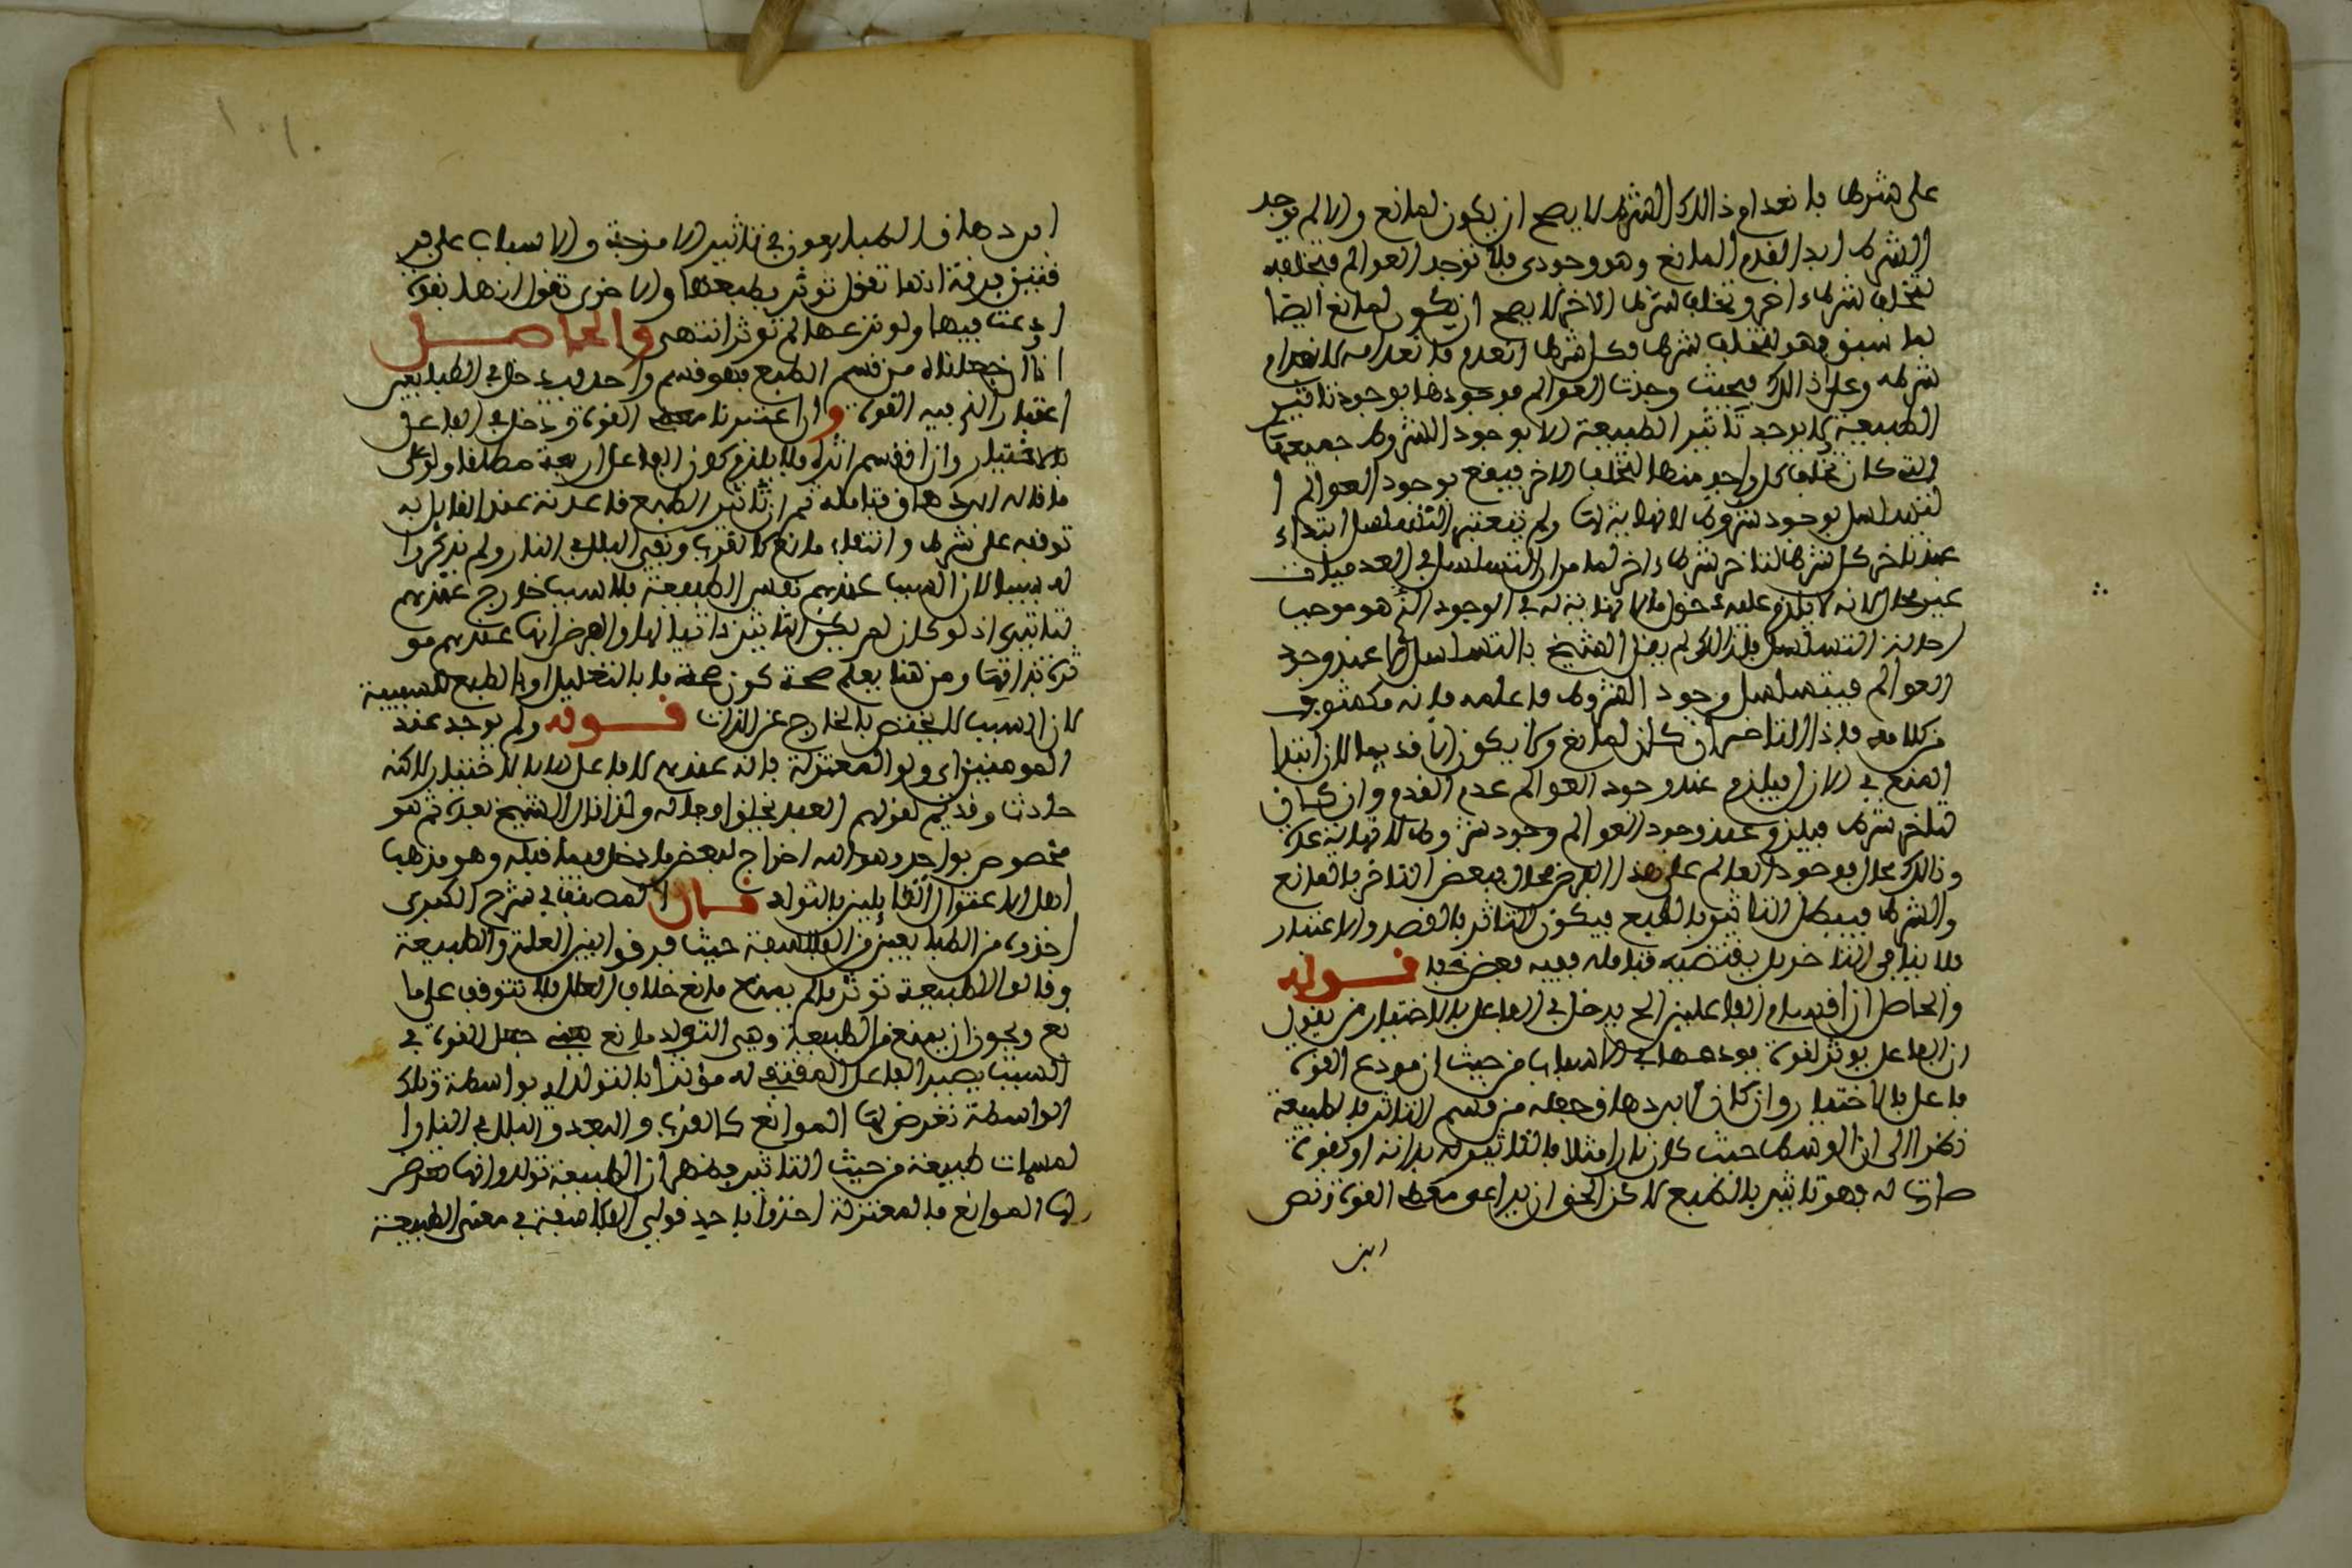 على شرط بانعدام ذالك الشرط لا يصح ان يكون لمانع والا لم يوجد
الشرط ابدا لقدم المانع وهو وجودي فلا توجد العوالم فتخلفه
لتخلف شرط ءاخر وتخلف شرط الاخر لا يصح ان يكون لمانع ايضا
لما سبق فهو لتخلف شرط فكل شرط انعدم فانعدامه لانعدام
شرطه وعلى ذالك فحيث وجدت العوالم فوجودها بوجود تاثير
الطبيعة ولا يوجد تاثير الطبيعة الا بوجود الشروط جميعها
التي كان تخلف كل واحد منها لتخلف الاخر فيقع بوجود العوالم ا
لتسلسل بوجود شروط لا نهاية لها ولم يعتبر التسلسل ابتداء
عند تاخر كل شرط لتاخر شرط ءاخر لما مر ان التسلسل في العدميات
غير محال لانه لا يلزم عليه دخول ما لا نهاية له في الوجود الذي هو موجب
احالة التسلسل فلذالك لم يقل الشيخ بالتسلسل الا عند وجود
العوالم فيتسلسل وجود الشروط فاعلمه فانه مكشوف
من كلامه فاذا التاخر ان كان لمانع ولا يكون الا قديما لان ابتدا
المنع في الازل فيلزم عند وجود العوالم عدم القديم وان كان
لتاخر شرط فيلزم عند وجود العوالم وجود شروط لا نهاية عدة
وذالك محال فوجود العالم على هذا الفرض محال فبعض التاخر بالمانع
والشرط فيبطل التاثير بالطبع فيكون التاثر بالقصد والاختيار
فلا ينافي التاخر بل يقتضيه فتامله ففيه بعض خفا قوله
والحاصل ان اقسام الفاعلين الخ يدخل في الفاعل بالاختيار من يقول
ان الفاعل يوثر لقوة يودعها في الاسباب من حيث ان مودع القوة
فاعل بالاختيار وان كان ابن دهاق جعله من قسم التاثير بالطبيعة
نظرا الى ان الوسط حيث كان نارا مثلا فالتاثير له بذاته او بقوة
صارت له فهو تاثير بالطبع لاكن الحق ان يراعى معطي القوة ونص
ابن
ابن دهاق الطبايعيون في تاثير الامزجة والاسباب على فر
قتين فرقة انها تقول توثر بطبعها والاخرى تقول انها بقوة
اودعت فيها ولو نزعها لم توثر انتهى والحاصل
انا ان جعلناه من قسم الطبع فهو قسم واحد فيدخل في الطبايعيين
اعتبار الذي فيه القوة وان اعتبرنا معطي القوة دخل في الفاعل
بالاختيار وان اقسم انه فلا يلزم كون الفاعل اربعة مطلقا ولو على
ما قاله ابن دهاق فتامله ثم ان تاثير الطبع قاعدته عند القايل به
توقفه على شرط وانتفاء مانع كالقرب ونفي البلل في النار ولم يذكروا
له سببا لان السبب عندهم نفس الطبيعة فلا سبب خارج عندهم
لتاثير اذ لو كان لم يكن التاثير ذاتيا لها والفرض انها عندهم مو
ثرة بذاتها ومن هنا يعلم صحة كون صحة ما بالتعليل او بالطبع للسببية
لان السبب لا يختص بالخارج عن الذات قوله ولم يوجد عند
المومنين اي ولو المعتزلة فانه عندهم لا فاعل الا بالاختيار لاكنه
حادث وقديم لقولهم العبد يخلق افعاله ولذا قال الشيخ بعده ثم هو
مخصوص بواحد وهو الله اخراج لبعض ما دخل فيما قبله وهو مذهب
اهل الاعتزال القايلين بالتولد قال المصنف في شرح الكبرى
اخذوه من الطبايعيين من الفلاسفة حيث فرقوا بين العلة والطبيعة
وقالوا الطبيعة توثر ما لم يمنع مانع خلاف العلل فلا تتوقف على ما
نع ويجوز ان يمنع من الطبيعة وهي التولد مانع جعل القوة في
السبب يصير الفاعل المفتقر له موثرا بالتولد او بواسطة وتلك
الواسطة تعرض لها الموانع كالقرب والبعد والبلل في النار ا
لمسمات طبيعة من حيث التاثير فظهر ان الطبيعة تولد وانها تعرض
لها الموانع فالمعتزلة اخذوا باحد قولي الفلاسفة في معنى الطبيعة